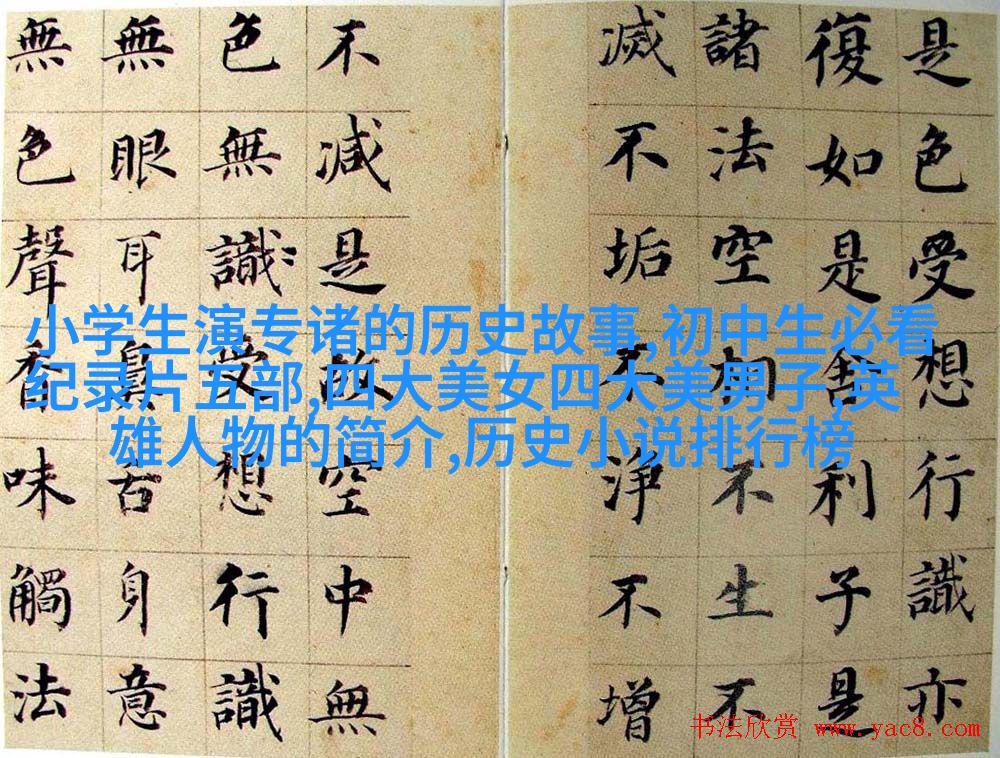 是色受想行識亦
復如是舍利子是
諸法空相不生不
滅不垢不淨不增
不減是故空中無
色無識受想行識
無眼耳鼻舌身意
無色聲香味觸法
小学生演专诸的历史故事,初中生必看
纪录片五部,四大美女四大美男子,英
雄人物的简介,历史小说排行榜
书法欣赏 www.yac8.com